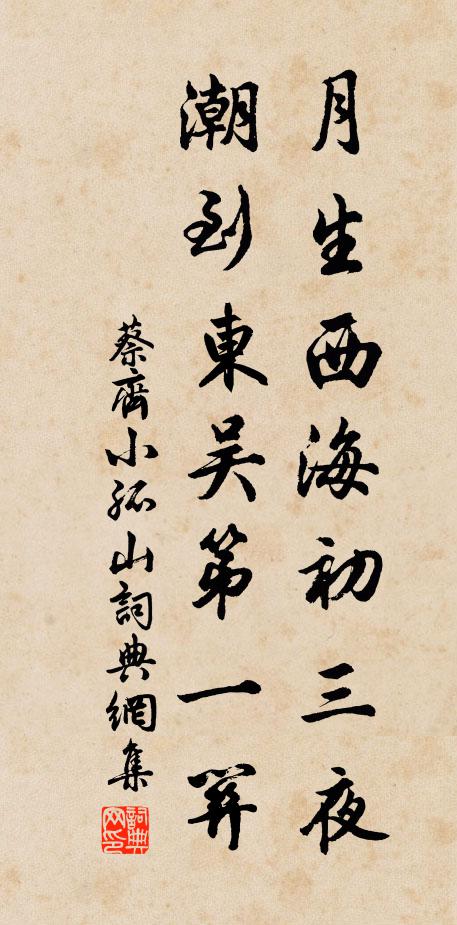 月生西海初三夜
潮到東吴第一關
蔡齊小孤山詞典網集
詞典網印